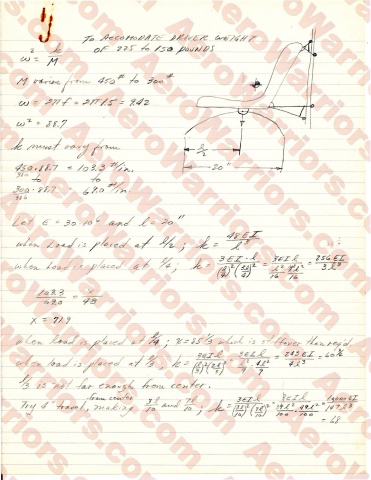 TO ACCOMODATE DRIVER WEIGHT
OF 225 to 150 POUNDS
ω² = k/M
M varies from 450# to 300#
ω = 2πf = 2π1.5 = 9.42
ω² = 88.7
k must vary from
450·88.7/386 = 103.3 #/in.
to to
300·88.7/386 69.0 #/in.
l/2
20"
Let E = 30·10⁶ and l = 20"
when Load is placed at l/2; k = 48EI/l³
when Load is placed at l/4; k = 3EI·l/(l/4)²(3l/4)² = 3EIl/(l²/16 · 9l²/16) = 256EI/3l³
103.3/69.0 = x/48
x = 71.9
when load is placed at l/4; x = 85 1/3 which is stiffer than req'd
when load is placed at l/3, k = 3EIl/(l/3)²(2l/3)² = 3EIl/(l²/9 · 4l²/9) = 243EI/4l³ = 60 3/4
l/3 is not far enough from center.
from center
Try 4" travel, making 3l/10 and 7l/10; k = 3EIl/(3l/10)²(7l/10)² = 3EIl/(9l²/100 · 49l²/100) = 10,000EI/147l³
= 68
AeroWarriors.com